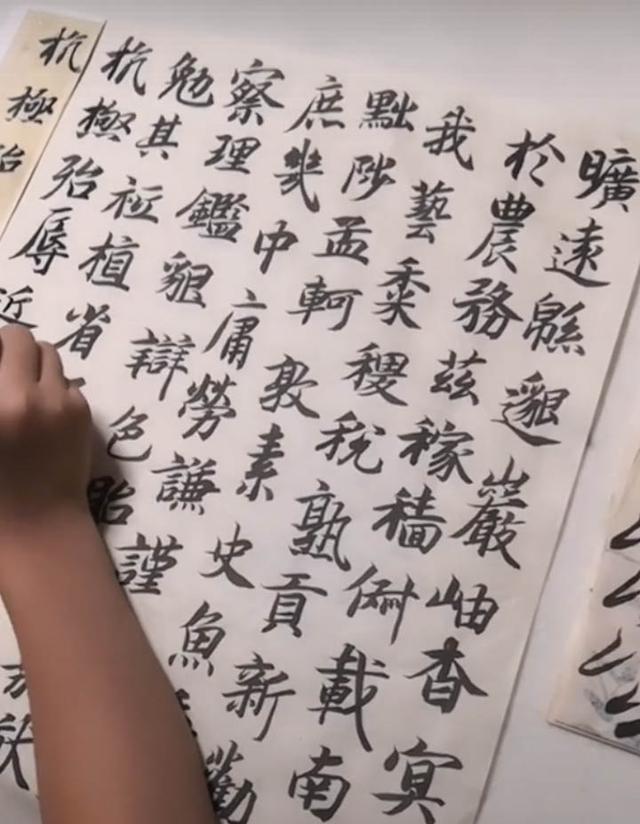 曠遠緜邈巖岫杳冥
於農務茲稼穡俶載南
我藝黍稷稅熟貢新勸
黜陟孟軻敦素史魚
庶幾中庸勞謙謹
察理鑑貌辯色貽
勉其祗植省
抗極殆辱近
欣
抗極殆